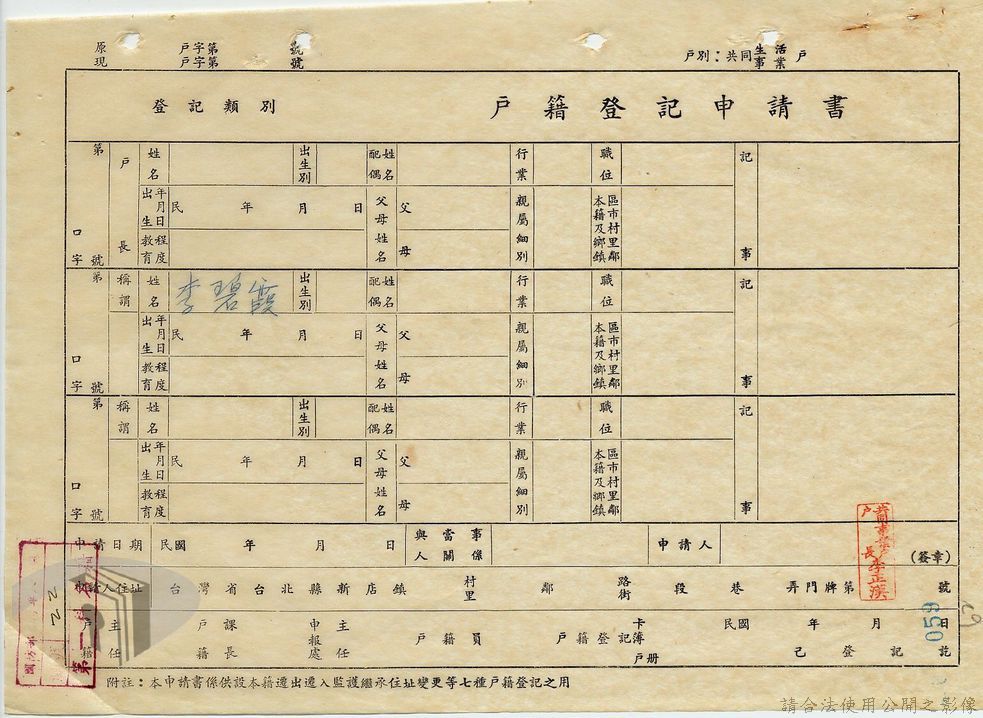 原 戶字第 號
現 戶字第 號
戶別：共同生活事業戶
登記類別 戶籍登記申請書
第 口字 號 戶長 姓名 出生別 配偶姓名 行業 職位 記事
出生年月日 民 年 月 日 父母姓名 父 母 親屬細別 本籍及鄉鎮區市村里鄰
教育程度
第 口字 號 稱謂 姓名 李碧霞 出生別 配偶姓名 行業 職位 記事
出生年月日 民 年 月 日 父母姓名 父 母 親屬細別 本籍及鄉鎮區市村里鄰
教育程度
第 口字 號 稱謂 姓名 出生別 配偶姓名 行業 職位 記事
出生年月日 民 年 月 日 父母姓名 父 母 親屬細別 本籍及鄉鎮區市村里鄰
教育程度
申請日期 民國 年 月 日 與當事人關係 申請人 (簽章)
共同事業戶戶長李正漢
申請人住址 台灣省台北縣新店鎮 村里 鄰 路街 段 巷 弄門牌第 號
戶籍主任 戶籍課長 申報處主任 戶籍員 戶籍登記卡簿戶册 民國 年 月 日已登記訖
第一科
22
059
附註：本申請書係供設本籍遷出遷入監護繼承住址變更等七種戶籍登記之用
請合法使用公開之影像